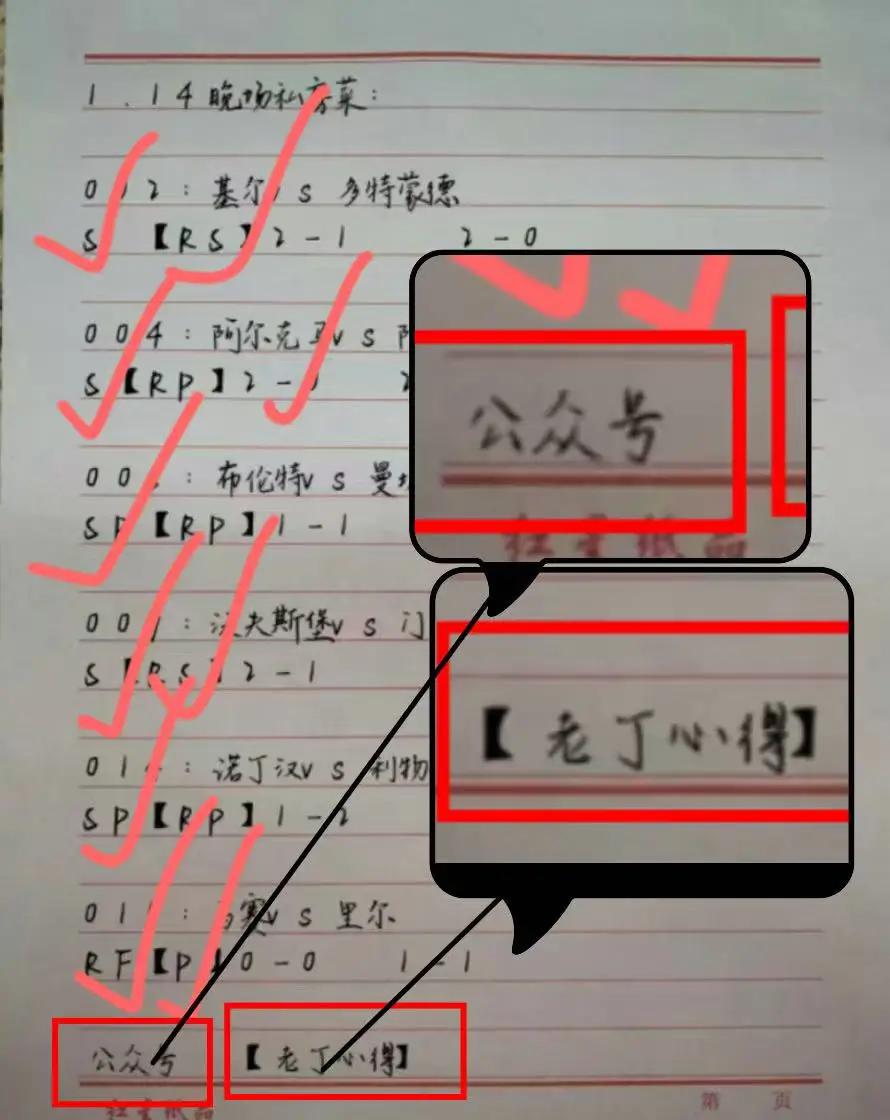 1.14晚场私房菜：
002：基尔vs多特蒙德
S【RS】2-1 2-0
004：阿尔克马vs
S【RP】2-1
00 ：布伦特vs曼城
SP【RP】1-1
00 ：沃夫斯堡vs门
S【RS】2-1
01 ：诺丁汉vs利物
SP【RP】1-2
01 ：马赛vs里尔
RF【P】0-0 1-1
公众号【老丁心得】
红星纸品
第 页
公众号
红星纸品
【老丁心得】